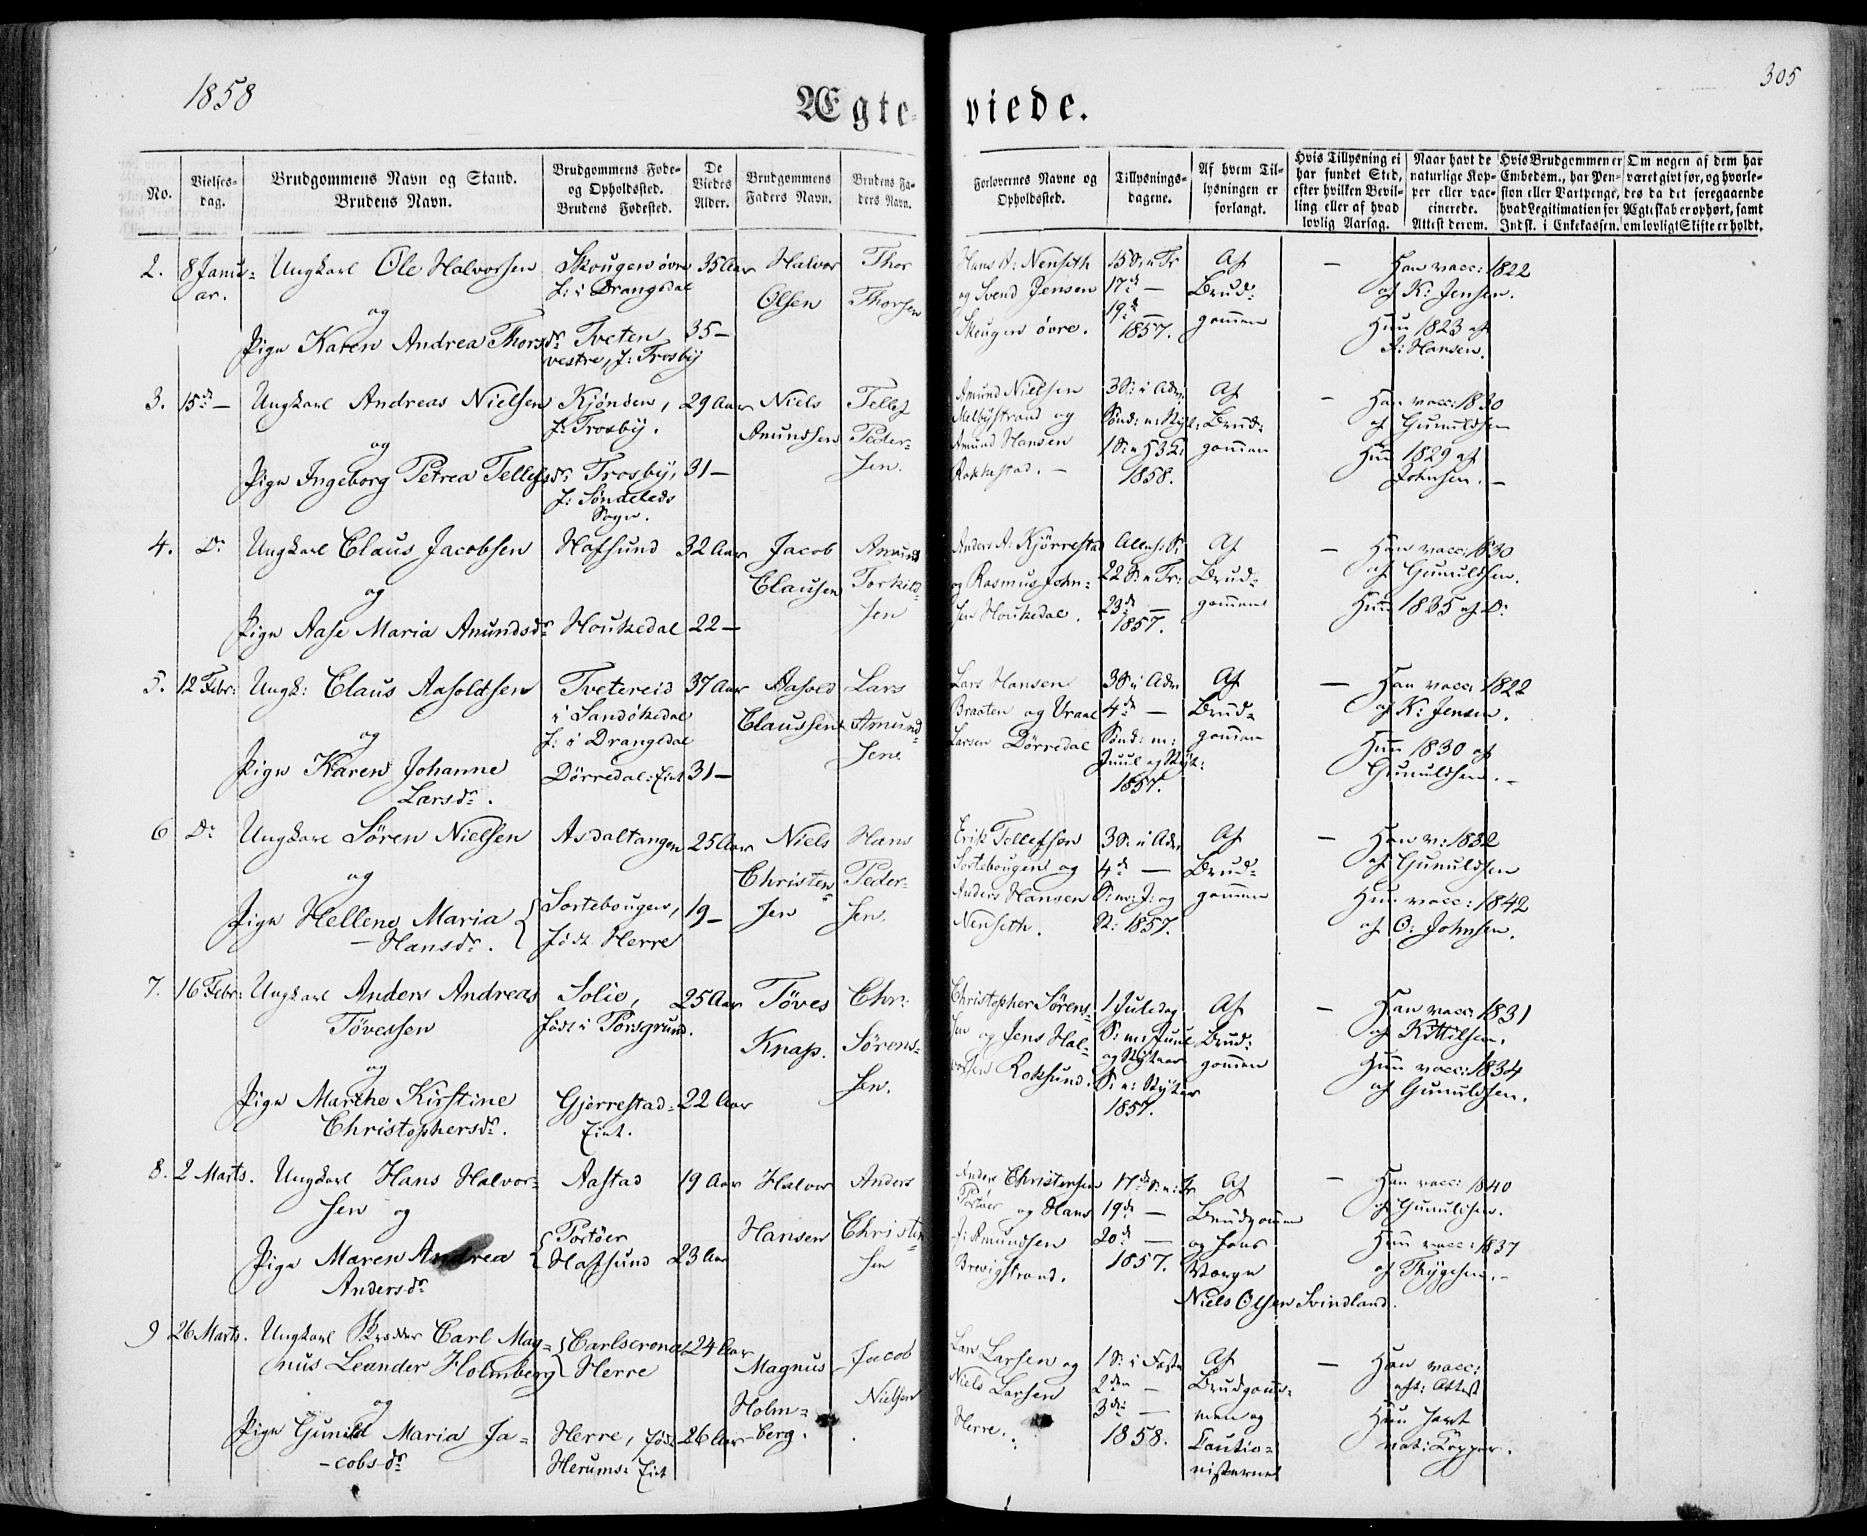 1858
305
Ægte-
viede.
No.
Vielses-
dag.
Brudgommens Navn og Stand.
Brudens Navn.
Brudgommens Føde-
og Opholdssted.
Brudens Fødested.
De
Viedes
Alder.
Brudgommens
Faders Navn.
Brudens Fa-
ders Navn.
Forlovernes Navne og
Opholdssted.
Tillysnings-
dagene.
Af hvem Til-
lysningen er
forlangt.
Hvis Tillysning ei
har fundet Sted,
efter hvilken Bevil-
ling eller af hvad
lovlig Aarsag.
Naar havt de
naturlige Kop-
per eller vac-
cinerede.
Attest derom.
Hvis Brudgommen er
Embedsm., har Pen-
sion eller Vartpenge,
hvad Legitimation for
Indsk. i Enkekassen.
Om nogen af dem har
været givt før, og hvorle-
des da det foregaaende
Ægteskab er ophørt, samt
om lovligt Skifte er holdt.
2. 8 Janu-
ar.
Ungkarl Ole Halvorsen
og
Pige Karen Andrea Thorsdr.
Skougen øvre
f: i Drangedal
Tveten
vestre, f: Trosby
35 Aar
35 —
Halvor
Olsen
Thor
Thorsen
Hans A: Nenseth
og Svend Jensen
Skougen øvre.
15 S: e Tr
17de —
19de —
1857.
Af
Brud-
gommen
—
Han vacc: 1822
af K: Jensen.
Hun 1823 af
J: Hansen.
3. 15de —
Ungkarl Andreas Nielsen
og
Pige Ingeborg Petrea Tellefsdr.
Kjønden,
f: Trosby.
Trosby,
f: Søndeleds
Sogn.
29 Aar
31 —
Niels
Amundsen
Tellef
Peder-
sen.
Amund Nielsen
Melbystrand og
Amund Hansen
Rakkestad. —
3 S: i Adv:
Sønd: e: Nyt:
1 S: e H3K:
1858.
Af
Brud-
gommen
—
Han vacc: 1830
af Gunuldsen
Hun 1829 af
Johnsen. —
4. Do
Ungkarl Claus Jacobsen
og
Pige Aase Maria Amundsdr.
Hafsund
Houkedal
32 Aar
22 —
Jacob
Clausen
Amund
Torkild-
sen
Anders A: Kjørrestad
og Rasmus John-
sen Houkedal.
Alleh: S:
22 S: e Tr:
23de —
1857.
Af
Brud-
gommen
—
Han vacc: 1830
af Gunuldsen.
Hun 1835 af Do
5. 12 Febr:
Ungk: Claus Aasoldsen
og
Pige Karen Johanne
Larsdr.
Tvetereid
i Sandøkedal
f: i Drangedal
Dørredal: Eiet
37 Aar
31 —
Aasold
Claussen
Lars
Amund-
sen.
Lars Hansen
Braaten og Vraal
Larsen Dørredal
3 S: i Adv
4de —
Sønd: m:
Juul og Nyt:
1857.
Af
Brud-
gommen
—
Han vacc: 1822
af K: Jensen.
Hun 1830 af
Gunuldsen. —
6 Do
Ungkarl Søren Nielsen
og
Pige Hellene Maria
— Hansdr.
Asdaltangen
Sortebougen,
født Herre
25 Aar
19 —
Niels
Christen-
sen
Hans
Peder-
sen.
Erik Tellefsen
Sortebougene og
Anders Hansen
Nenseth.
3 S: i Adv
4de —
S: m: J: og
N: 1857.
Af
Brud-
gommen
—
Han v: 1832
af Gunuldsen
Hun vacc: 1842
af O: Johnsen.
7. 16 Febr:
Ungkarl Anders Andreas
Tövessen
og
Pige Marthe Kirstine
Christophersdr.
Solie,
født i Porsgrund.
Gjerrestad-
Eiet.
25 Aar
22 Aar
Töves
Knap.
Chr:
Sørens-
sen.
Christopher Sørens-
sen og Jens Hal-
vorsen Roksund.
1 Juledag
S: m: Juul
og Nytaar
S: e: Nytaar
1857.
Af
Brud-
gommen
—
Han vacc: 1831
af Kittilsen.
Hun vacc: 1834
af Gunuldsen.
8. 2 Marts.
Ungkarl Hans Halvor-
sen og
Pige Maren Andrea
Andersdr.
Aastad
Portøer
Hafsund
19 Aar
23 Aar
Halvor
Hansen
Anders
Christen-
sen
Anders Christensen
Portøer og Hans
A: Amundsen
Brevigstrand.
17de S: e: Tr
19de —
20de —
1857.
Af
Brudgommen
og hans
Værge
Niels Olsen Svindland.
—
Han vacc: 1840
af Gunuldsen.
Hun vacc: 1837
af Thygesen. —
9 26 Marts.
Ungkarl Skrædder Carl Mag-
nus Leander Holmberg
og
Pige Gunild Maria Ja-
cobsdr
Carlscrona
Herre
Herre, født
Herums: Eiet
24 Aar
26 Aar
Magnus
Holm-
berg.
Jacob
Nielsen
Lars Larsen og
Niels Larsen
Herre.
1 S: i Faste
2den —
3die —
1858.
Af
Brudgom-
men og
Cautio-
nisterne
—
Han vacc:
efter Attest
Hun havt
nat: Kopper.